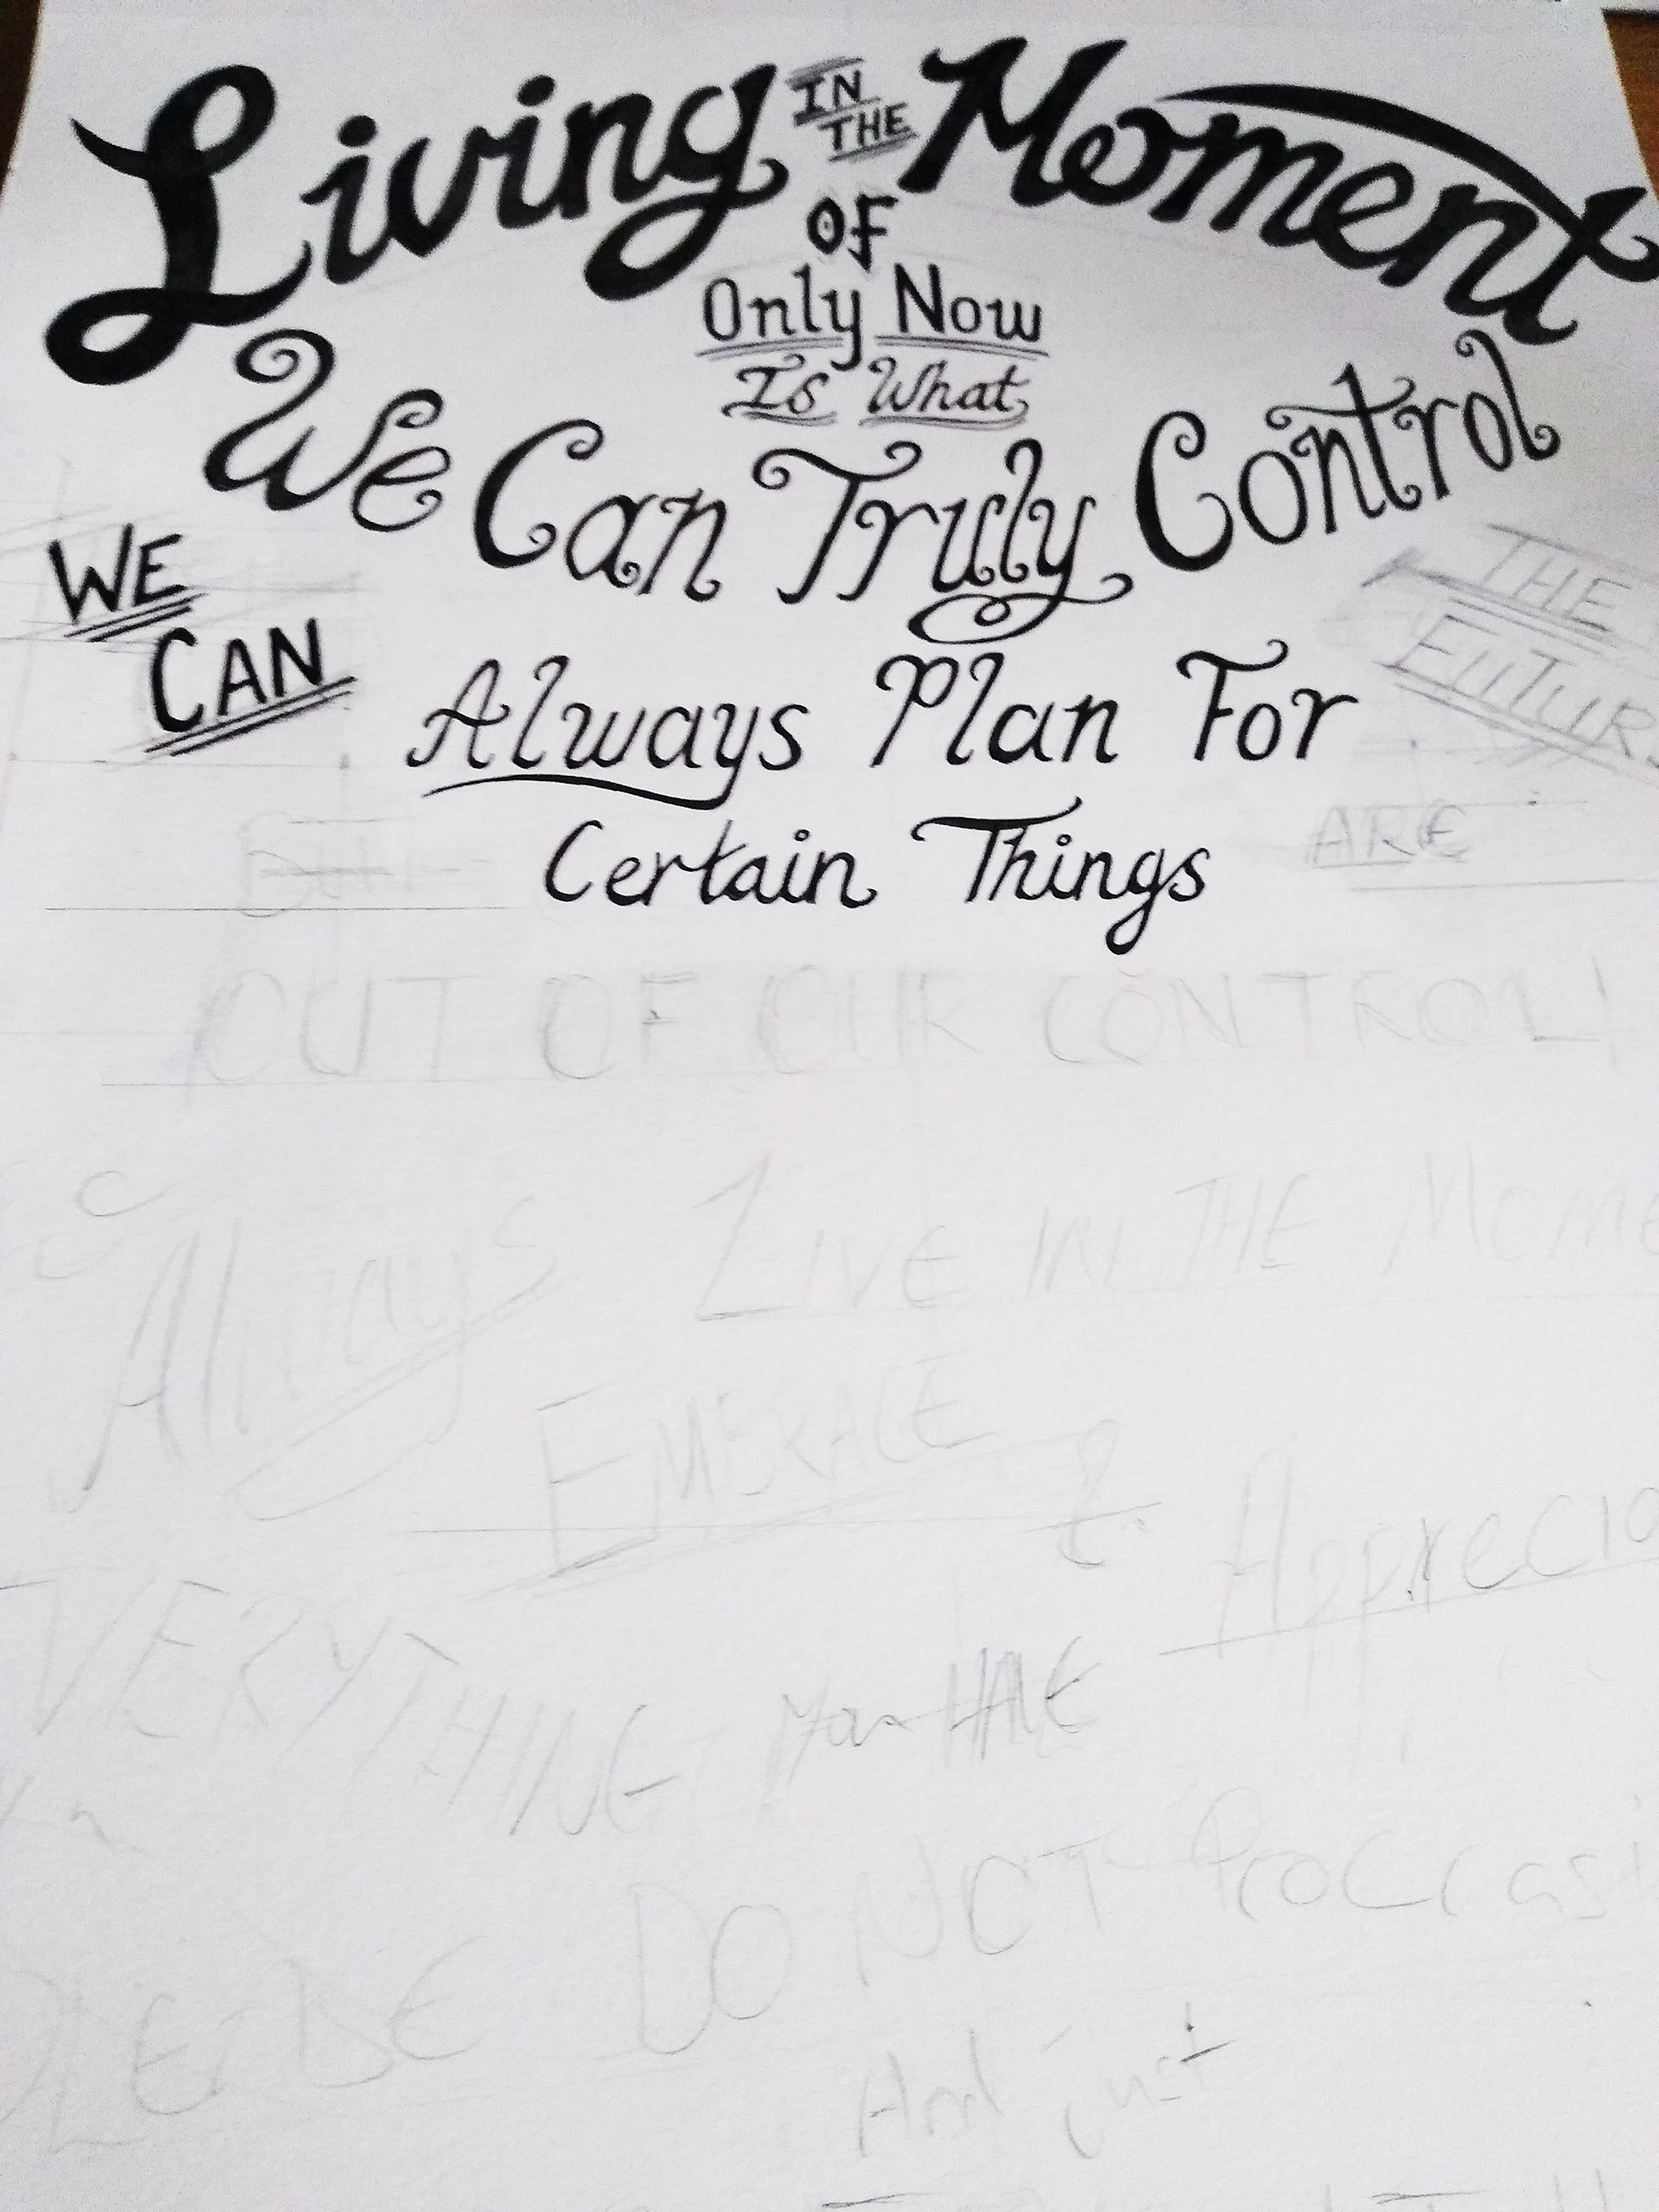 Living IN THE Moment
OF
Only Now
Is What
We Can Truly Control
WE
CAN
Always Plan For
THE
FUTUR
Certain Things
BUT
ARE
OUT OF OUR CONTROL!
Always LIVE IN THE Mome
EMBRACE & Apprecia
VERYTHING You HAVE
DO NOT Procrasi
And just